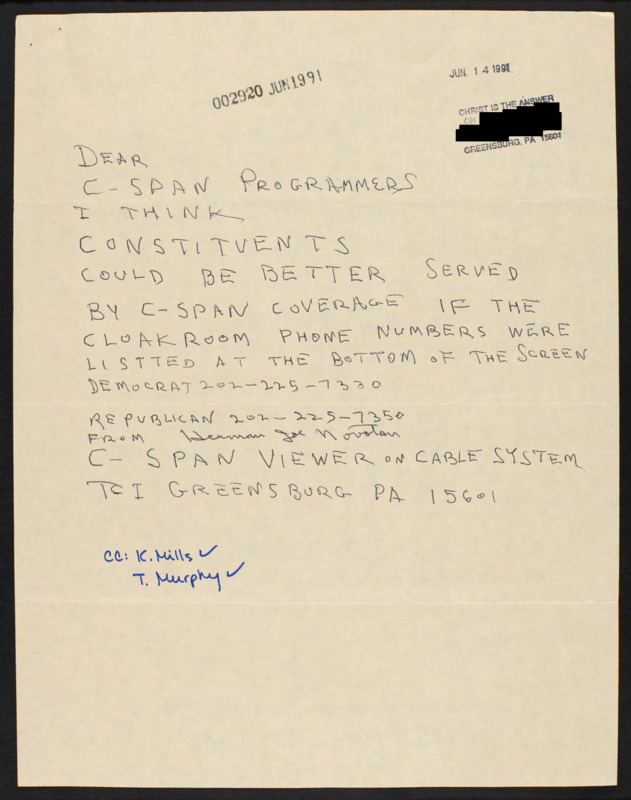 002920 JUN 1991
JUN. 14 1991
CHRIST IS THE ANSWER
GREENSBURG, PA 15601
DEAR
C-SPAN PROGRAMMERS
I THINK
CONSTITUENTS
COULD BE BETTER SERVED
BY C-SPAN COVERAGE IF THE
CLOAKROOM PHONE NUMBERS WERE
LISTTED AT THE BOTTOM OF THE SCREEN
DEMOCRAT 202-225-7330
REPUBLICAN 202-225-7350
FROM Herman Joe
C-SPAN VIEWER ON CABLE SYSTEM
TCI GREENSBURG PA 15601
CC: K. Mills ✓
T. Murphy ✓